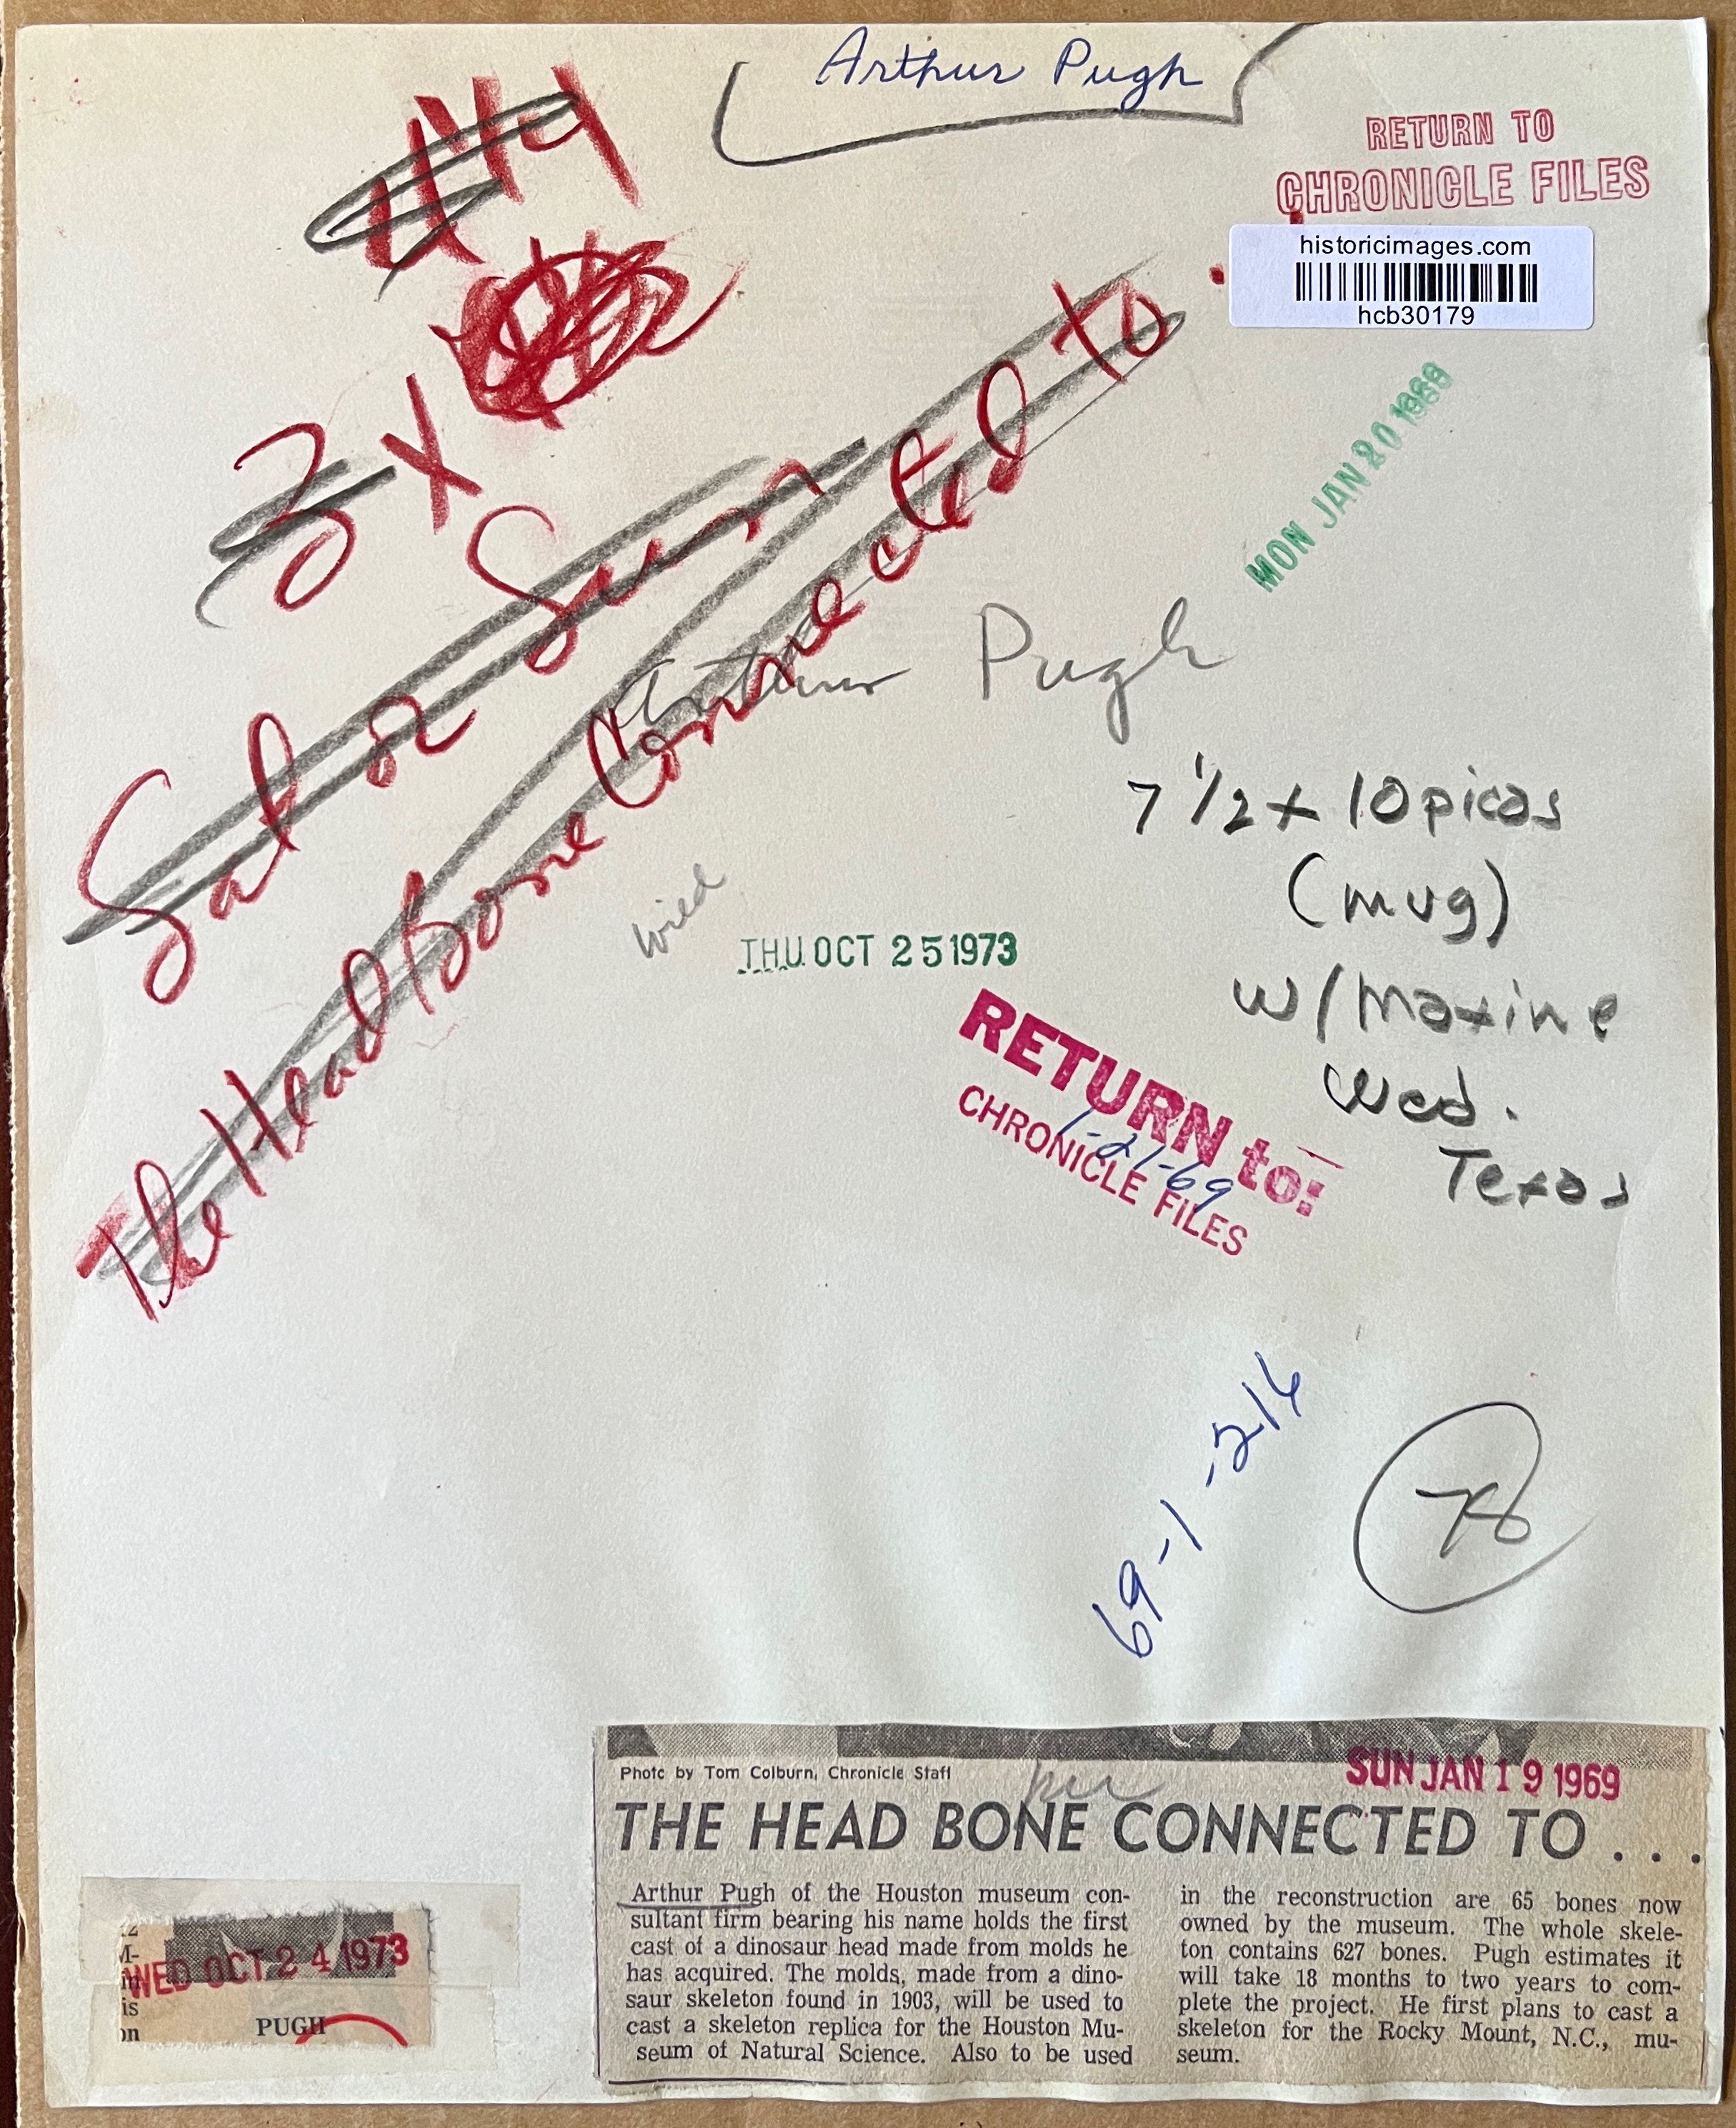 Arthur Pugh
RETURN TO
CHRONICLE FILES
historicimages.com
hcb30179
3 x
Sat or Sun
The Head bone Connected to
MON JAN 20 1969
Arthur Pugh
7 1/2 x 10 picas
(mug)
w/ Maxine
Wed.
Texas
THU OCT 25 1973
RETURN to:
CHRONICLE FILES
1-21-69
69-1-216
78
Photo by Tom Colburn, Chronicle Staff
SUN JAN 19 1969
THE HEAD BONE CONNECTED TO . . .
Arthur Pugh of the Houston museum con-
sultant firm bearing his name holds the first
cast of a dinosaur head made from molds he
has acquired. The molds, made from a dino-
saur skeleton found in 1903, will be used to
cast a skeleton replica for the Houston Mu-
seum of Natural Science. Also to be used
in the reconstruction are 65 bones now
owned by the museum. The whole skele-
ton contains 627 bones. Pugh estimates it
will take 18 months to two years to com-
plete the project. He first plans to cast a
skeleton for the Rocky Mount, N.C., mu-
seum.
WED OCT 24 1973
is
on
PUGH